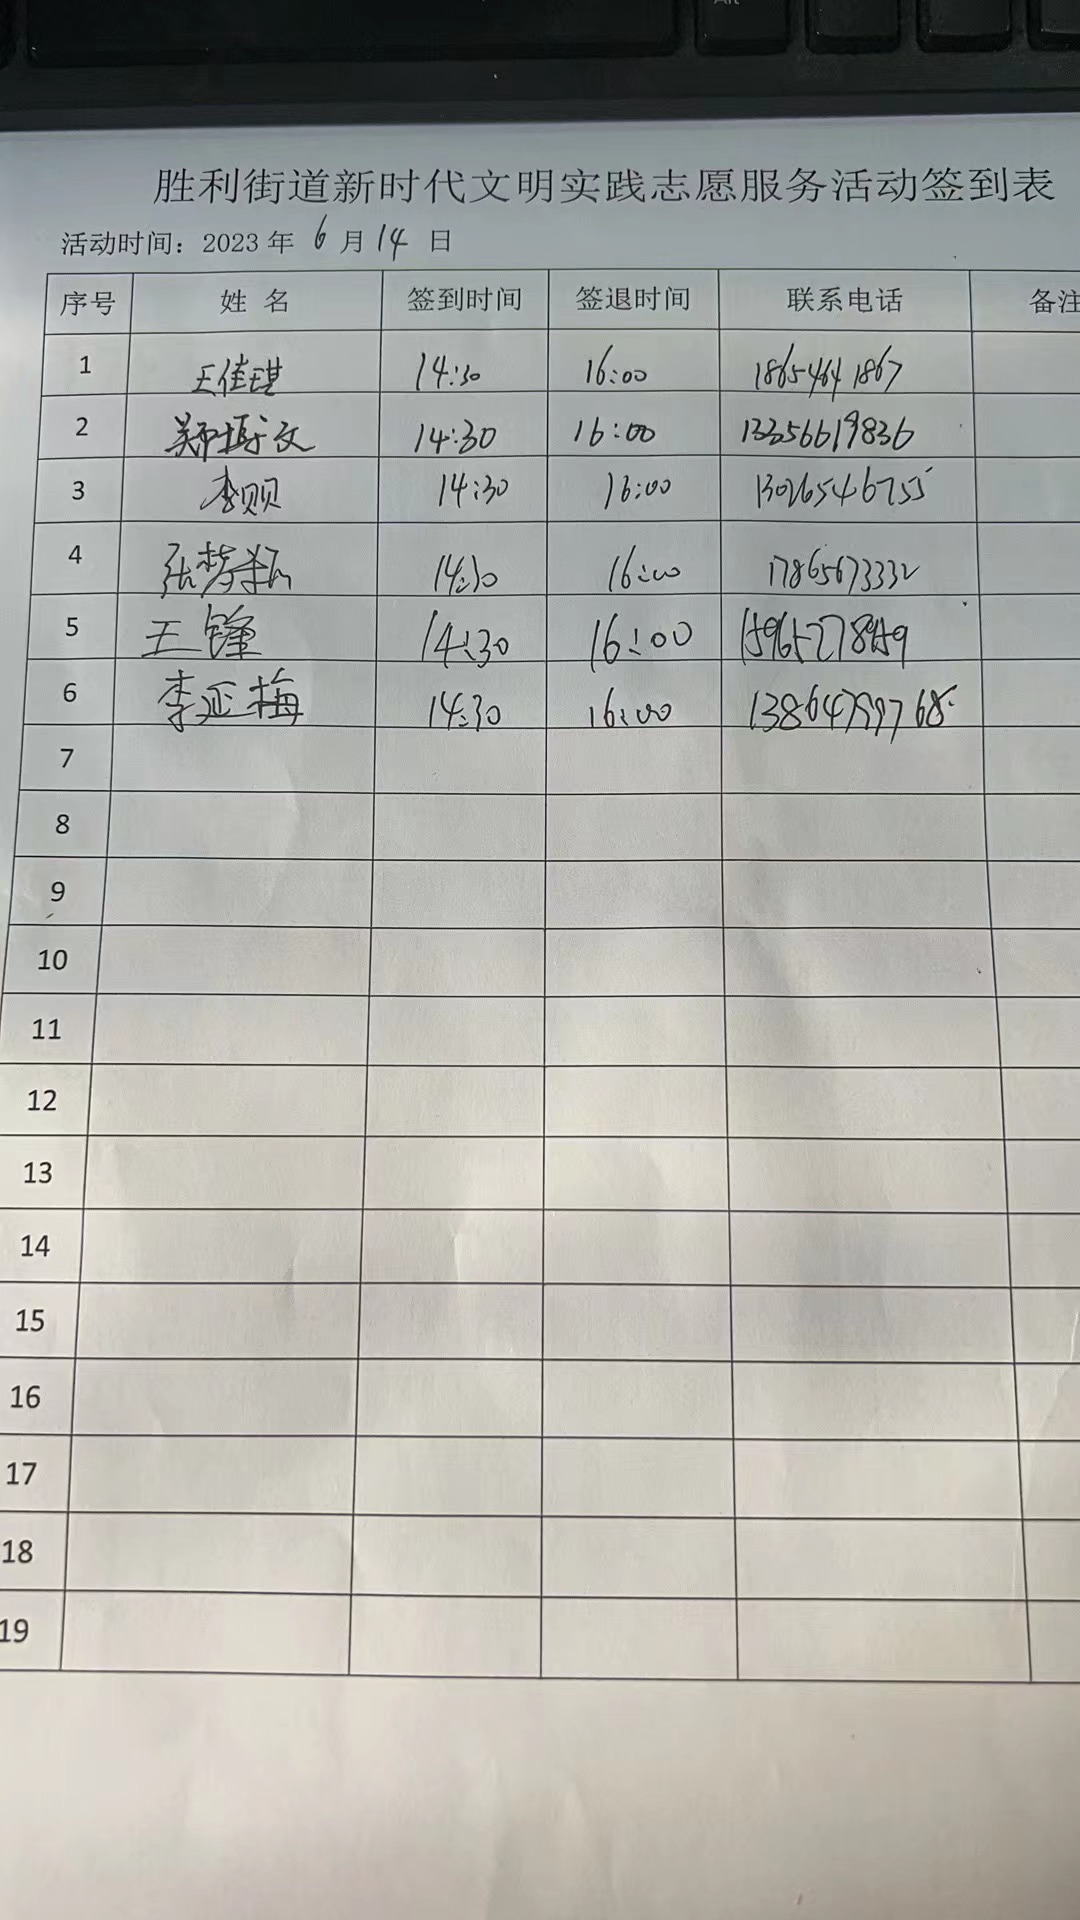 胜利街道新时代文明实践志愿服务活动签到表
活动时间：2023年 6 月 14 日
序号 姓名 签到时间 签退时间 联系电话 备注
1 王佳琪 14:30 16:00 18654641867
2 郑博文 14:30 16:00 13356619836
3 李贝贝 14:30 16:00 13026546755
4 14:30 16:00 17865673332
5 王锋 14:30 16:00
6 李延梅 14:30 16:00
7
8
9
10
11
12
13
14
15
16
17
18
19